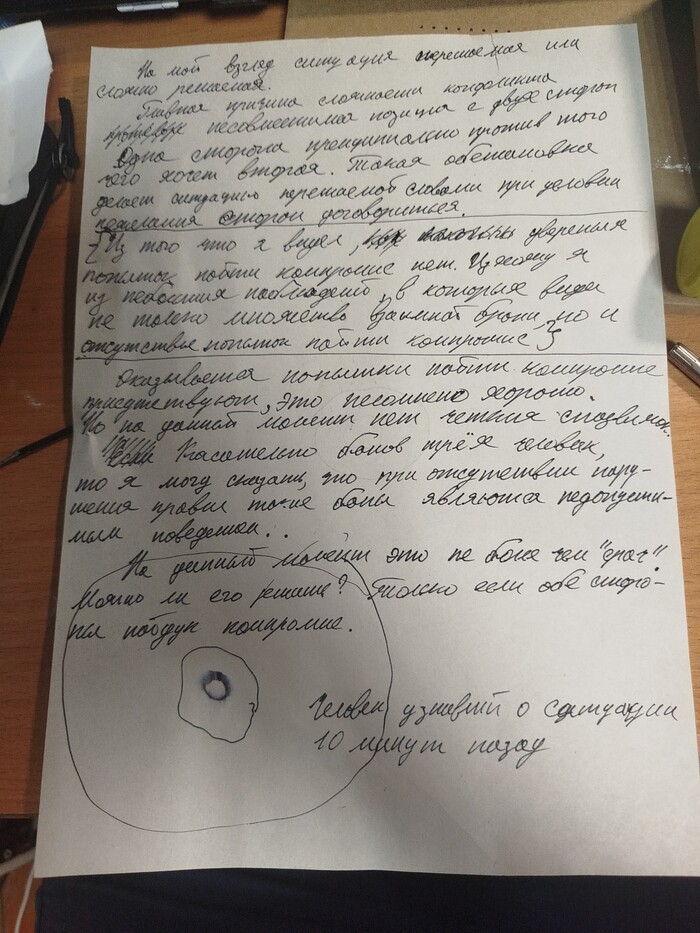 На мой взгляд ситуация нерешаемая или
сложно решаемая.
Главная причина сложности конфликта
несовместимая позиция с двух сторон
Одна сторона принципиально против того
чего хочет вторая. Такая обстановка
делает ситуацию нерешаемой словами при условии
нежелания сторон договориться.
{Из того что я видел, уверенных
попыток найти компромис нет. Исхожу я
из небольших наблюдений, в которых видел
не только множество взаимной брани, но и
отсутствие попыток найти компромис}
Оказывается попытки найти компромис
присутствуют, это несомнено хорошо.
Но на данный момент нет четких
Касательно банов трёх человек,
то я могу сказать, что при отсутствии нару-
шения правил такие баны являются недопусти-
мым поведением..
На данный момент это не более чем "срач"
Можно ли его решить? Только если обе сторо-
ны пойдут компромис.
Человек узнавший о ситуации
10 минут назад